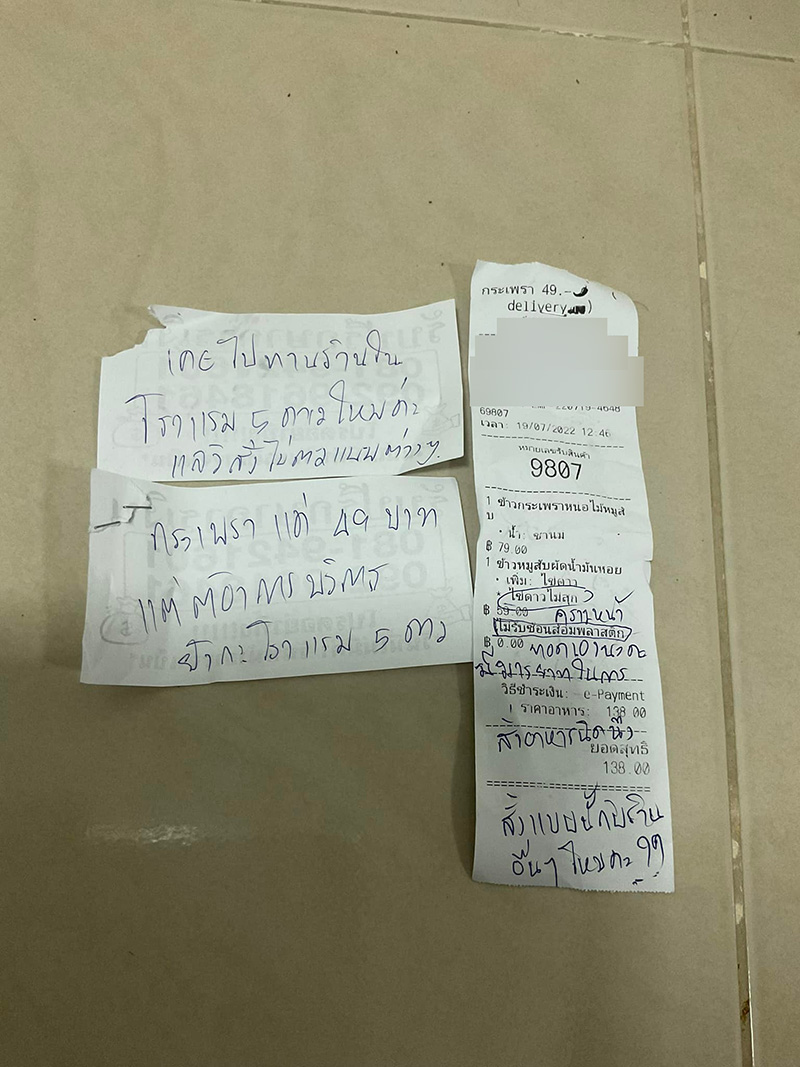 เคย ไปทานร้านใน
โรงแรม 5 ดาวไหมค่ะ
แล้วสั่งไข่ดาวแบบต่างๆ
กระเพรา แค่ 49 บาท
แต่ต้องการบริการ
โรงแรม 5 ดาว
กระเพรา 49.-
delivery )
69807
เวลา: 19/07/2022 12:46
หมายเลขรับสินค้า
9807
1 ข้าวกระเพราหนอไม้หมูส
บ
• น้ำ: ชานม
฿ 79.00
1 ข้าวหมูสับผัดน้ำมันหอย
• เพิ่ม: ไข่ดาว
• ไข่ดาวไม่สุก
฿ 59.00 คราวหน้า
ไม่รับช้อนส้อมพลาสติก
฿ 0.00 ทอดเอานะคะ
มีมารยาทในการ
วิธีชำระเงิน: e-Payment
ราคาอาหาร: 138.00
สั่งอาหารนิดนึง
ยอดสุทธิ
138.00
สั่งแบบนี้กับร้าน
อื่นๆ ไหมคะ ??